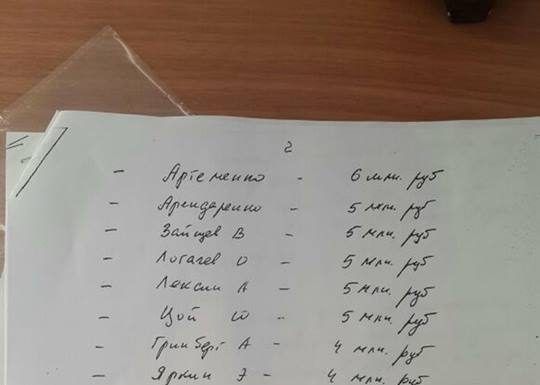 2
- Артеменко - 6 млн. руб
- Арендаренко - 5 млн. руб
- Зайцев В - 5 млн. руб
- Логачев О - 5 млн. руб
- Лексин А - 5 млн. руб
- Цой Ю - 5 млн. руб
- Гринберг А - 4 млн. руб
- Яркин Э - 4 млн. руб